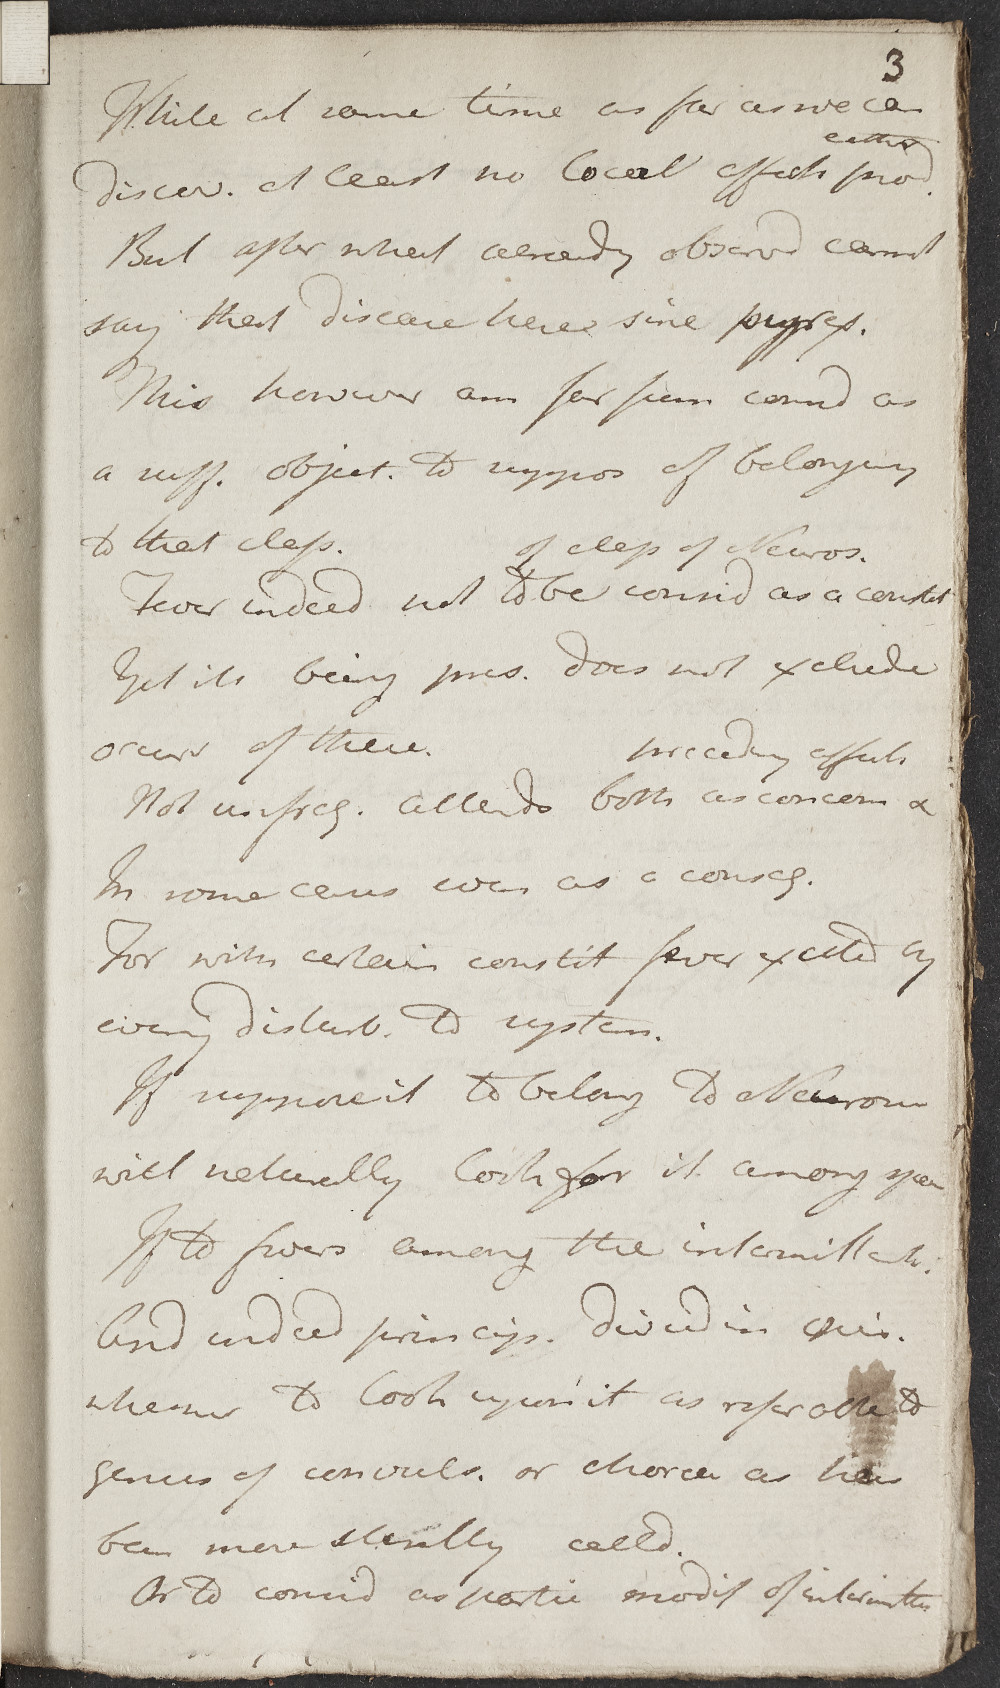 3
While at same time as far as we can
either
discov. at least no local effects prod.
But after what already observd cannot
say that disease here sine pyrex.
This however am far from consid as
a suff. object. to suppos of belonging
to that class.
of class of Neuros.
Fever indeed not to be consid as a constit
Yet its being pres. does not exclude
occurr of these.
preceding effects
Not unfreq. attends both as concom &
In some cases even as a conseq.
For with certain constit fever excited by
every disturb. to system.
If suppose it to belong to Neuroses
will naturally look for it among spas
If to fevers among the intermittents.
And indeed princip. divided in opin.
whether to look upon it as referable to
genus of convuls. or chorea as has
been more strictly calld.
Or to consid as partic modif of intermitts